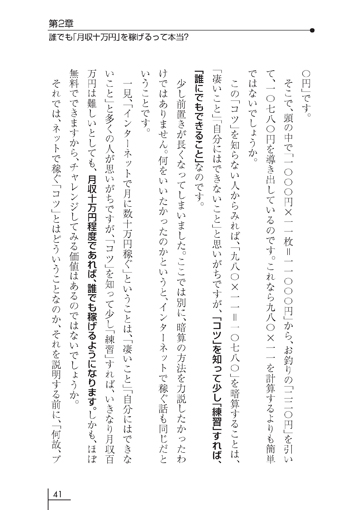 第2章
誰でも「月収十万円」を稼げるって本当?
〇円」です。
そこで、頭の中で「一〇〇〇円×一一枚＝一一〇〇〇円」から、お釣りの「二二〇円」を引い
て、一〇七八〇円を導き出しているのです。これなら九八〇×一一を計算するよりも簡単
ではないでしょうか。
この「コツ」を知らない人からみれば、「九八〇×一一＝一〇七八〇」を暗算することは、
「凄いこと」「自分にはできないこと」と思いがちですが、「コツ」を知って少し「練習」すれば、
「誰にでもできること」なのです。
少し前置きが長くなってしまいました。ここでは別に、暗算の方法を力説したかったわ
けではありません。何をいいたかったのかというと、インターネットで稼ぐ話も同じだと
いうことです。
一見、「インターネットで月に数十万円稼ぐ」ということは、「凄いこと」「自分にはできな
いこと」と多くの人が思いがちですが、「コツ」を知って少し「練習」すれば、いきなり月収百
万円は難しいとしても、月収十万円程度であれば、誰でも稼げるようになります。しかも、ほぼ
無料でできますから、チャレンジしてみる価値はあるのではないでしょうか。
それでは、ネットで稼ぐ「コツ」とはどういうことなのか、それを説明する前に、「何故、ブ
41